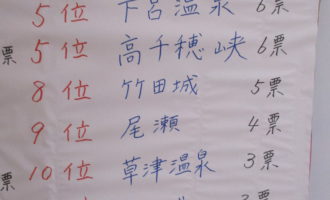 5位 下呂温泉 6票
票 5位 高千穂峡 6票
8位 竹田城 5票
9位 尾瀬 4票
票 10位 草津温泉 3票
3票